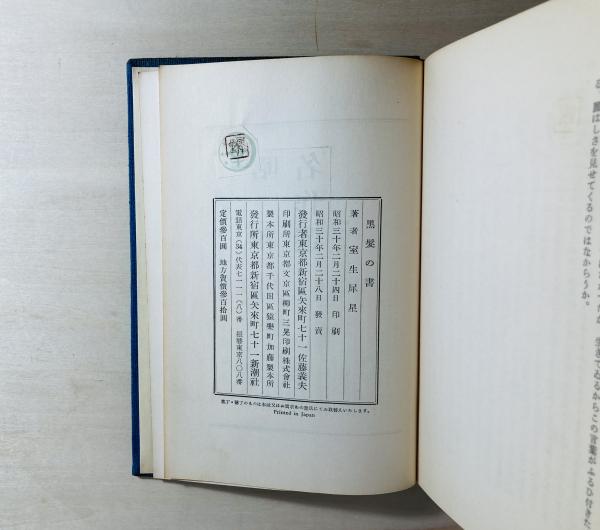 る、麗はしさを見せてくるのではなからうか。
生きてゐるからこの言葉がふるひ付きた
黒髪の書
著者 室生犀星
昭和三十年二月二十四日 印刷
昭和三十年二月二十八日 發賣
發行者東京都新宿區矢來町七十一佐藤義夫
印刷所東京都文京區柳町三晃印刷株式會社
製本所東京都千代田區猿樂町加藤製本所
發行所東京都新宿區矢來町七十一新潮社
電話東京(34)代表七一一一(八)番 振替東京八〇八番
定價參百圓 地方賣價參百拾圓
亂丁・落丁のものは本社又はお買求めの書店にてお取替えいたします。
Printed in Japan